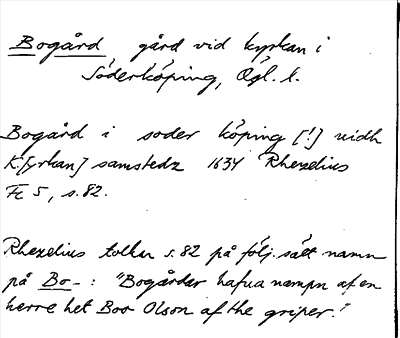 Bogård gård vid kyrkan i
Söderköping, Ögl. l.
Bogård i soder köping [!] widh
K[yrkan] samstedz 1634 Rhezelius
Fc 5, s. 82.
Rhezelius tolkar s. 82 på följ. sätt namn
på Bo- : "Bogårdar hafua nampn af en
herre het Boo Olson af the griper."